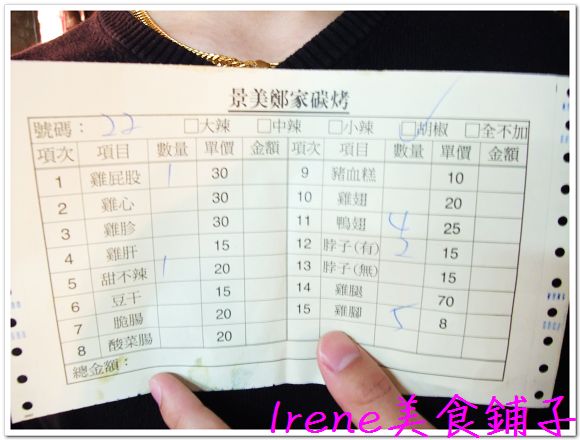 景美鄭家碳烤
號碼： 22 □大辣 □中辣 □小辣 ☑胡椒 □全不加
項次 項目 數量 單價 金額 項次 項目 數量 單價 金額
1 雞屁股 1 30 9 豬血糕 10
2 雞心 30 10 雞翅 20
3 雞胗 30 11 鴨翅 4 25
4 雞肝 15 12 脖子(有) 2 15
5 甜不辣 1 20 13 脖子(無) 15
6 豆干 15 14 雞腿 70
7 脆腸 20 15 雞腳 5 8
8 酸菜腸 20
總金額：
Irene美食鋪子